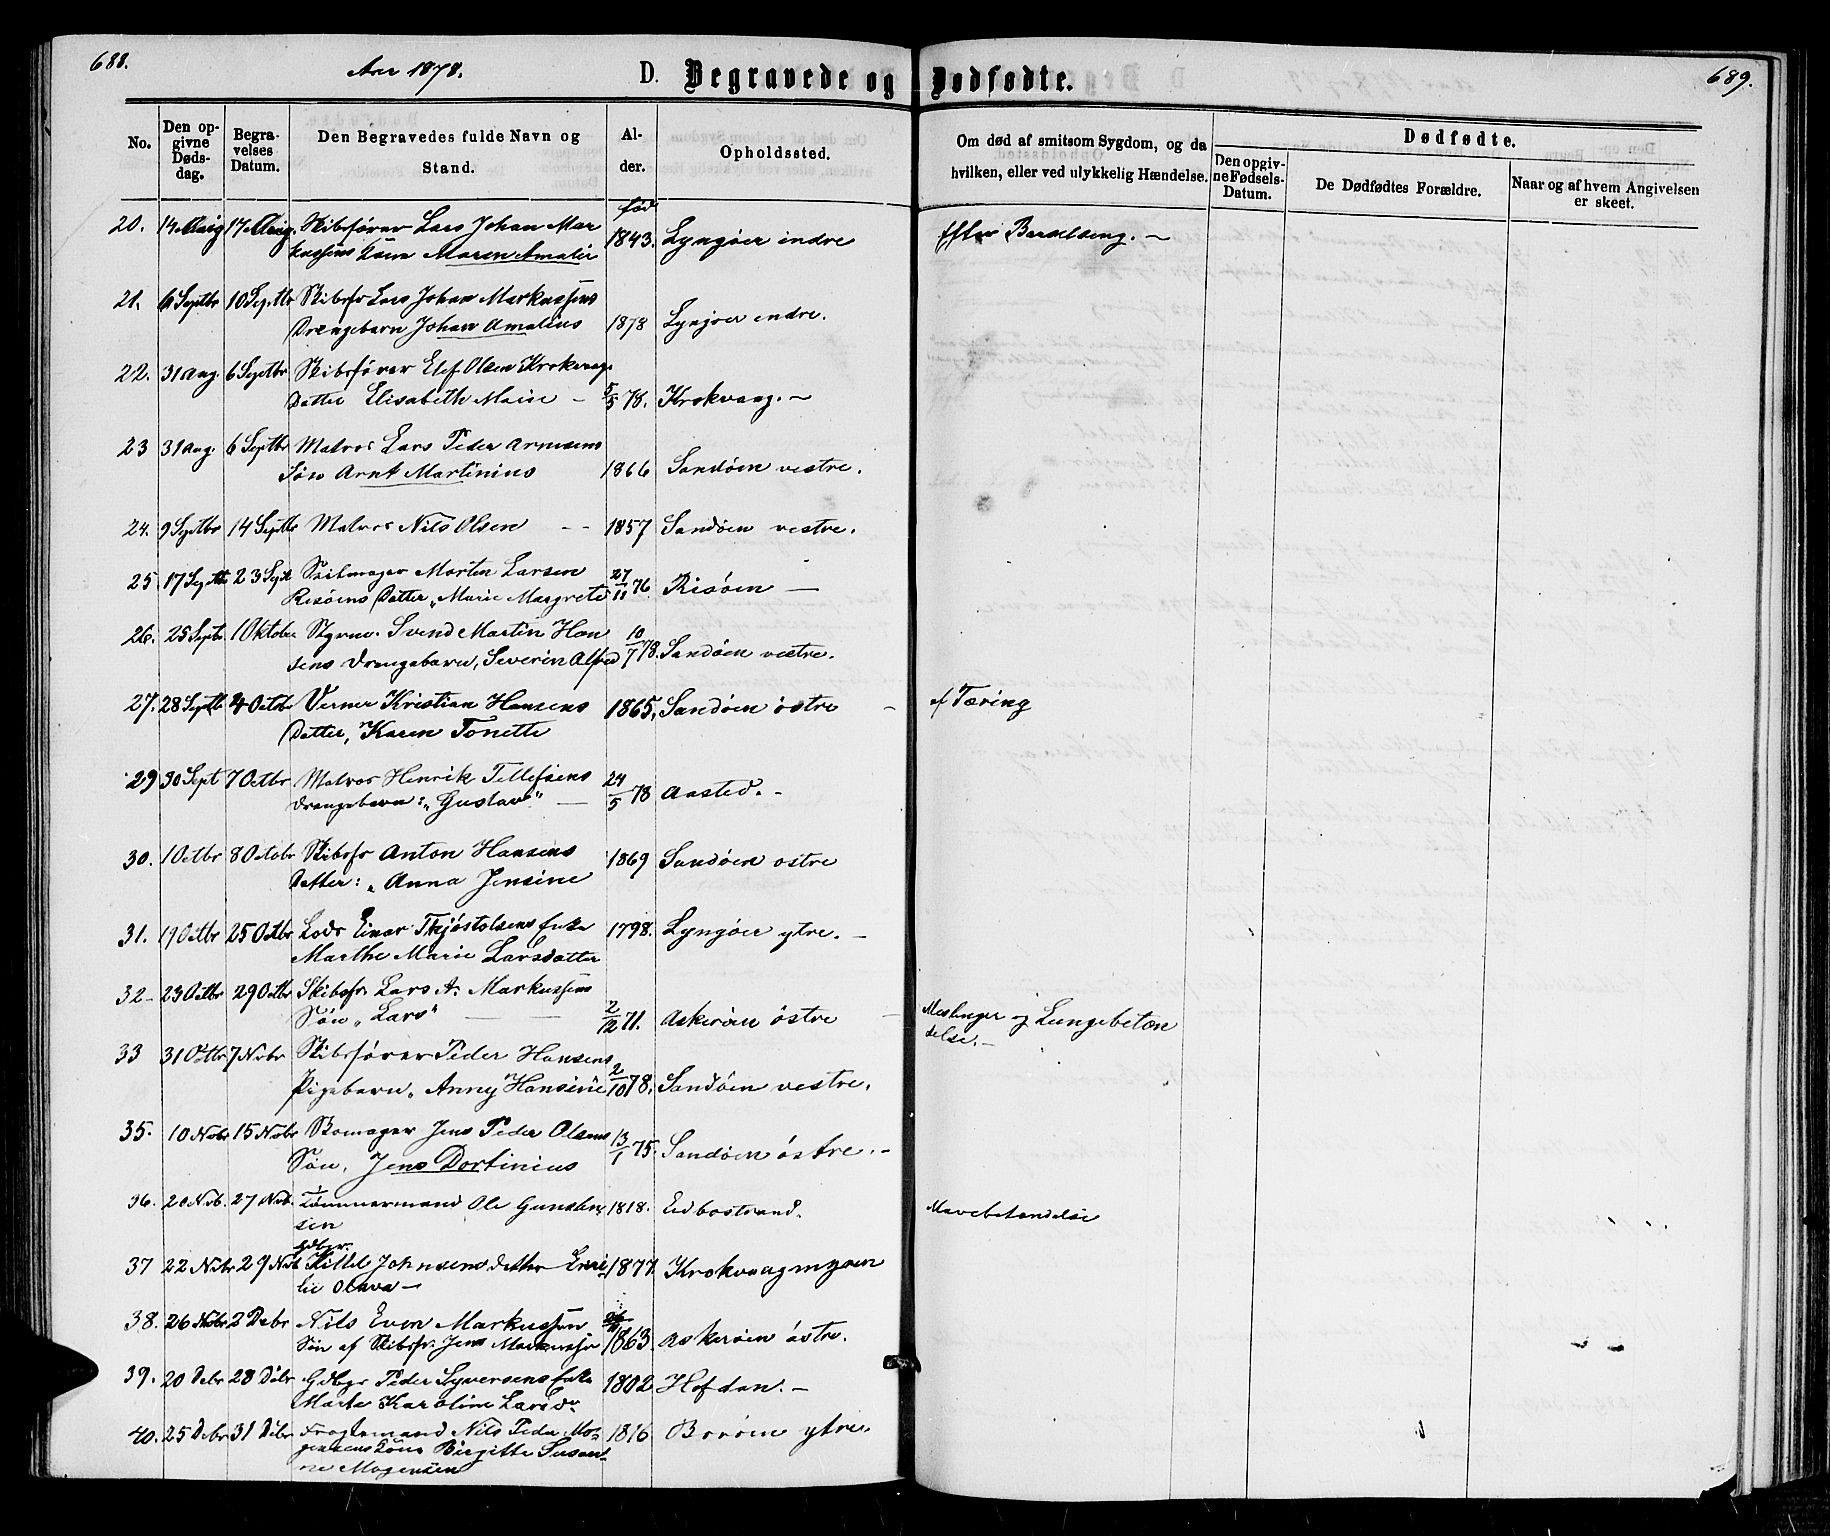 688.
Aar 1878.
D. Begravede og Dødfødte.
689.
No.
Den opgivne Dødsdag.
Begravelses Datum.
Den Begravedes fulde Navn og Stand.
Alder.
Opholdssted.
Om død af smitsom Sygdom, og da hvilken, eller ved ulykkelig Hændelse.
Dødfødte.
Den opgivne Fødsels-Datum.
De Dødfødtes Forældre.
Naar og af hvem Angivelsen er skeet.
født
20. 14 Aug 17 Aug. Skibsfører Lars Johan Mar
kussens Kone Maren Amalie 1843. Lyngøer indre Efter Barselseng. —
21. 6 Septbr 10 Septbr Skibsfr Lars Johan Markussens
Drengebarn Johan Amalius 1878 Lyngøer indre.
22. 31 Aug. 6 Septbr Skibsfører Elef Olsen Krokvaag
Datter Elisabeth Marie – 5/5 78. Krokvaag. —
23 31 Aug. 6 Septbr Matros Lars Peder Arnesens
Søn Arnt Martinius 1866 Sandøen vestre.
24. 9 Septbr 14 Septbr Matros Nils Olsen – – 1857 Sandøen vestre.
25 17 Septbr 23 Sept Seilmager Morten Larsen
Risøens Datter „Marie Margrete 27/11 76 Risøen —
26. 25 Septbr 1 Oktober Styrm. Svend Martin Han
sens Drengebarn, Severin Alfred 10/7 78. Sandøen vestre.
27. 28 Septbr 4 Octobr Verner Kristian Hansens
Datter, Karen Tonette 1865, Sandøen østre – af Tæring
29 30 Sept 7 Octbr Matros Henrik Tellefsens
Drengebarn: „Gustav" — 24/5 78 Aasted. –
30. 1 Octbr 8 Octobr Skibsfr Anton Hansens
Datter: „Anna Jensine 1869 Sandøen østre
31. 19 Octbr 25 Octbr Lods Einar Thjøstolsens Enke
Marthe Marie Larsdatter 1798. Lyngøer ytre. –
32 – 23 Octbr 29 Octbr Skibsfr. Lars A. Markussens
Søn „Lars" — — 2/12 71. Askerøen østre – Meslinger og Lungebetæn
delse. –
33 31 Octbr 7 Novbr Skibsfører Peder Hansens
Pigebarn „Anny Hansine 2/10 78. Sandøen vestre.
35. 10 Novbr 15 Novbr Jens Peder Olsens
Søn, Jens Dortinius 13/1 75. Sandøen østre. –
36. 20 Nvb. 27 Nvb. Tømmermand Ole Gundersen
sen 1818. Eidbostrand. Mavebetændelse
37 22 Novbr 29 Nvb Gdbgr. Kittel Johnsens datter Emi
lie Olava — 1877 Krokvaagmyren
38. 26 Novbr 2 Debr Nils Even Markussen
Søn af Skibsfr. Jens Markussen 1863. Askerøen østre.
39. 20 Debr 28 Debr Gdbgr Peder Syversens Enke
Marte Karoline Larsdr 1802 Hofdan. –
40. 25 Debr 31 Debr Fragtemand Nils Peder Mo-
gensens Kone Birgitte Susan-
ne Mogensen 1816 Borøen ytre.